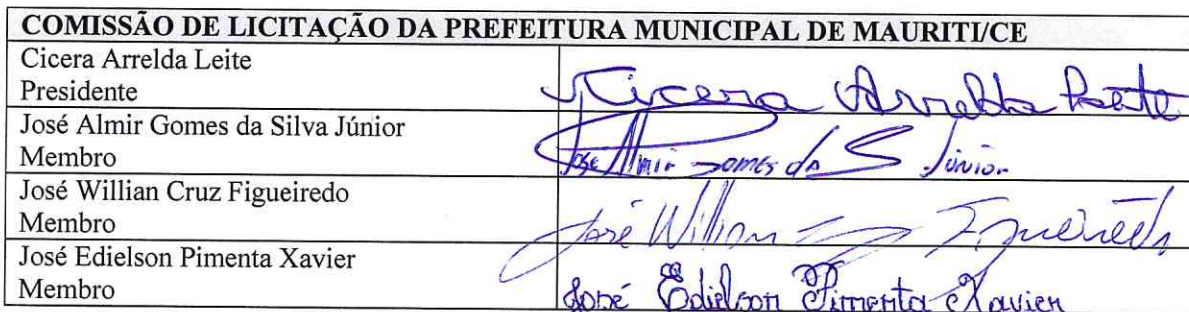 COMISSÃO DE LICITAÇÃO DA PREFEITURA MUNICIPAL DE MAURITI/CE
Cicera Arrelda Leite
Presidente
Cicera Arrelda Leite
José Almir Gomes da Silva Júnior
Membro
José Almir Gomes da S Júnior
José Willian Cruz Figueiredo
Membro
José Willian Figueiredo
José Edielson Pimenta Xavier
Membro
José Edielson Pimenta Xavier